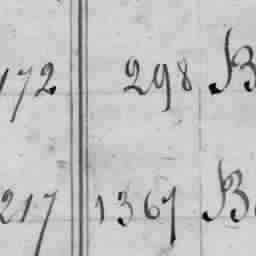 172 298 B
217 1367 B